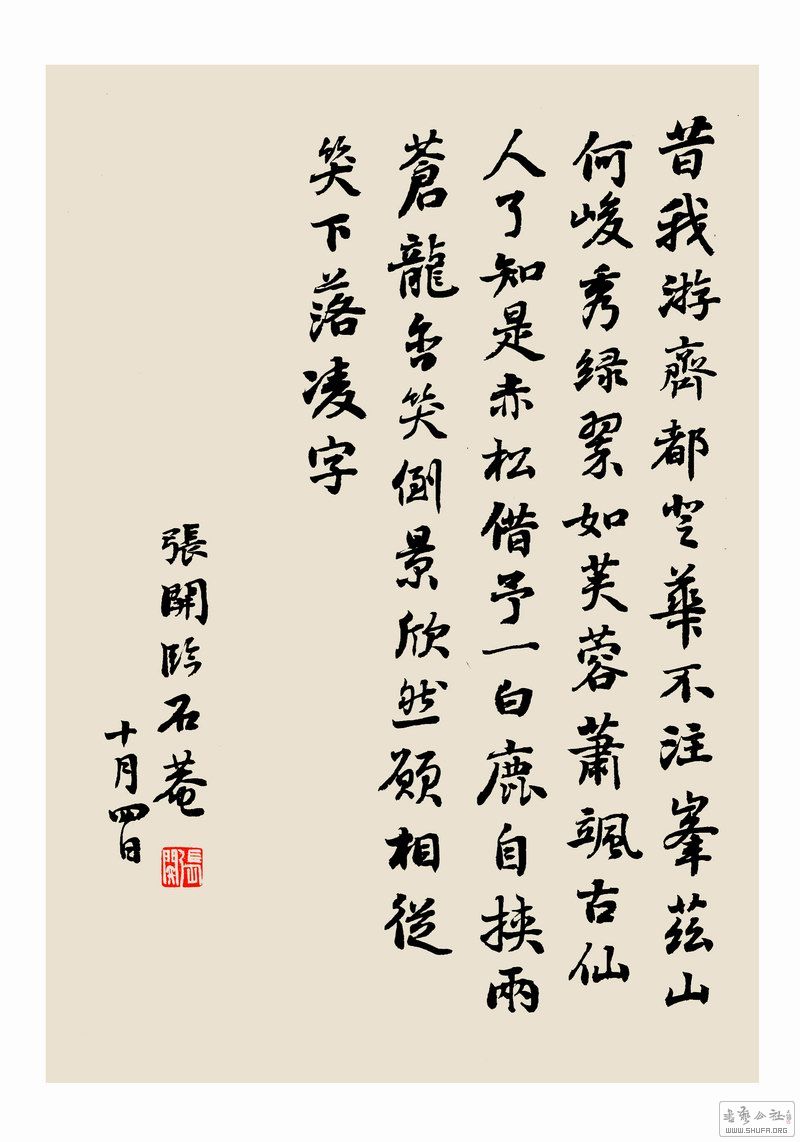 昔我游齊都登華不注峯茲山
何峻秀綠翠如芙蓉蕭颯古仙
人了知是赤松借予一白鹿自挾兩
蒼龍含笑倒景欣然願相從
笑下落凌字
張開臨石菴
十月四日
張開
書藝公社
WWW.SHUFA.ORG